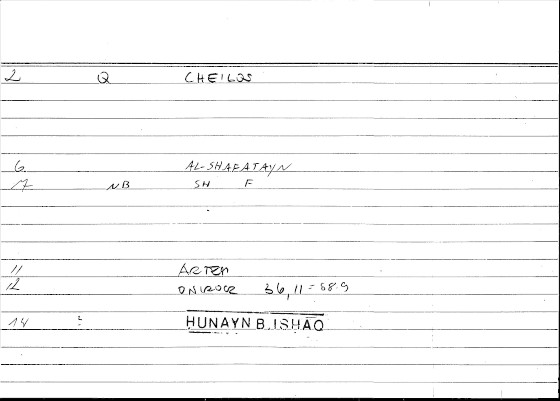 2 Q CHEILOS
6. AL-SHAFATAYN
7 NB SH F
11 ARTEM
12 ONIROCR 36,11 = 68.9
14 : HUNAYN B. ISHAQ